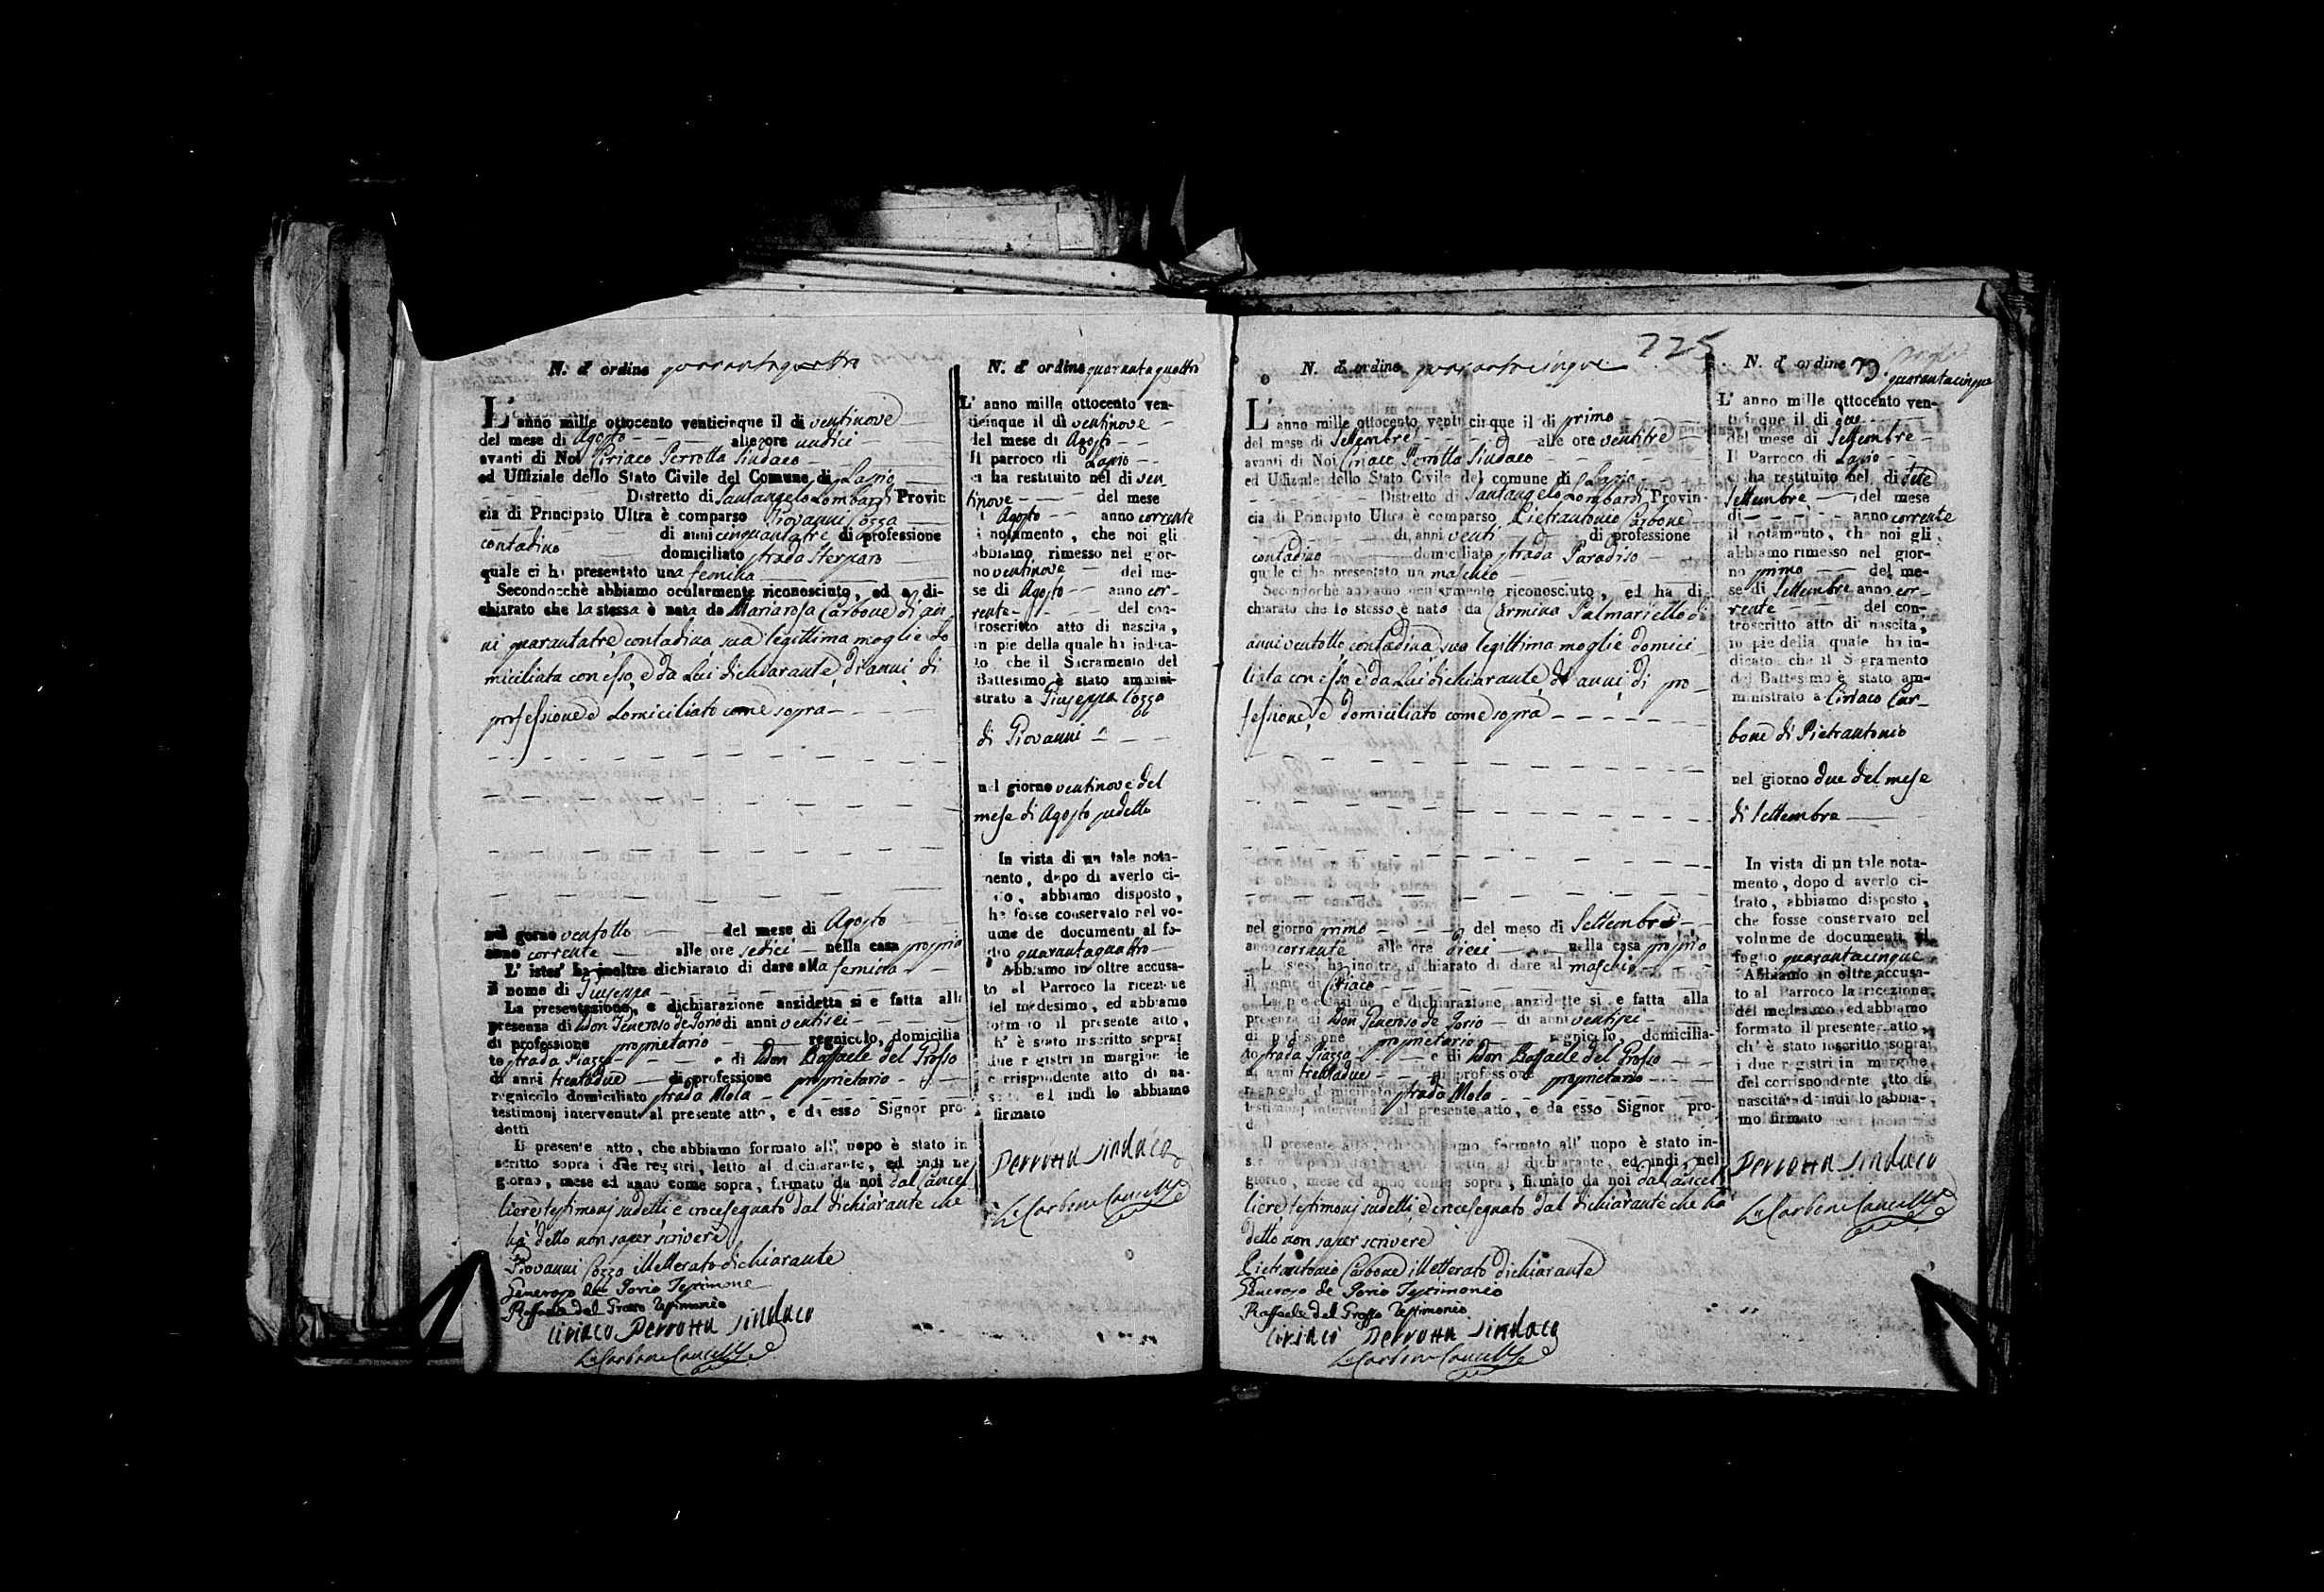 N. d' ordine quarantaquattro
L' anno mille ottocento venticinque il di ventinove
del mese di Agosto alle ore undici
avanti di Noi Ciriaco Perrotta Sindaco
ed Uffiziale dello Stato Civile del Comune di Lapio
Distretto di Santangelo Lombardi Provin
cia di Principato Ultra è comparso Giovanni Cozzo
di anni cinquantatre di professione
contadino domiciliato strada Sterparo
quale ci ha presentato una femina
Secondocchè abbiamo ocularmente riconosciuto, ed a di-
chiarato che la stessa è nata da Mariarosa Carbone di an-
ni quarantatre contadina, sua legittima moglie do
miciliata con esso, e da Lui dichiarante, di anni, di
professione e domiciliato come sopra
nel gorno ventotto del mese di Agosto
anno corrente alle ore sedici nella casa propria
L' istes' ha inoltre dichiarato di dare alla femina
il nome di Giuseppa
La presentazione, e dichiarazione anzidetta si e fatta alla
presenza di Don Generoso de Iorio di anni ventisei
di professione proprietario regnicolo, domicilia
to strada Piazza e di Don Raffaele del Grosso
di anni trentadue di professione proprietario
regnicolo domiciliato strada Mola
testimonj intervenuti al presente atto, e da esso Signor pro-
dotti
Il presente atto, che abbiamo formato all' uopo è stato in
scritto sopra i due registri, letto al dichiarante, ed indi ne
giorno, mese ed anno come sopra, firmato da noi dal Cancel
liere testimonj sudetti e crocesegnato dal dichiarante che
hà detto non saper scrivere
Giovanni Cozzo illetterato dichiarante
Generoso de Iorio Testimone
Raffaele del Grosso Testimonio
Ciriaco Perrotta Sindaco
Carbone Cancelliere
N. d' ordine quarantaquattro
L' anno mille ottocento ven-
ticinque il di ventinove
del mese di Agosto
Il parroco di Lapio
ci ha restituito nel di ven
tinove del mese
Agosto anno corrente
notamento, che noi gli
abbiamo rimesso nel gior-
no ventinove del me-
se di Agosto anno cor-
rente del con-
troscritto atto di nascita,
in pie della quale ha indica-
to che il Sacramento del
Battesimo è stato ammini-
strato a Giuseppa Cozzo
di Giovanni
nel giorno ventinove del
mese di Agosto sudetto
In vista di un tale nota-
mento, dopo di averlo ci-
to, abbiamo disposto,
he fosse conservato nel vo-
ume de documenti al fo-
glio quarantaquattro
Abbiamo in oltre accusa-
to al Parroco la ricezione
del medesimo, ed abbiamo
formato il presente atto,
h' è stato inscritto sopra
due registri in margine de
corrispondente atto di na-
scita ed indi lo abbiamo
firmato
Perrotta Sindaco
Carbone Cancelliere
225
N. d' ordine quarantacinque
L' anno mille ottocento venticinque il di primo
del mese di Settembre alle ore ventitre
avanti di Noi Ciriaco Perrotta Sindaco
ed Uffiziale dello Stato Civile del comune di Lapio
Distretto di Santangelo Lombardi Provin-
cia di Principato Ultra è comparso Pietrantonio Carbone
di anni venti di professione
contadino domiciliato strada Paradiso
quale ci ha presentato un maschio
Secondochè abbiamo ocularmente riconosciuto, ed ha di-
chiarato che lo stesso è nato da Carmina Palmariello di
anni ventotto contadina, sua legittima moglie domici
liata con esso, e da Lui dichiarante, di anni, di pro-
fessione, e domiciliato come sopra
nel giorno primo del mese di Settembre
anno corrente alle ore dieci nella casa propria
L' stess' ha inoltre dichiarato di dare al maschio
il nome di Ciriaco
La presentazione, e dichiarazione anzidette si e fatta alla
presenza di Don Generoso de Iorio di anni ventisei
di professione proprietario regnicolo, domicilia-
to strada Piazza e di Don Raffaele del Grosso
di anni trentadue di professione proprietario
regnicolo domiciliato strada Mola
testimonj intervenuti al presente atto, e da esso Signor pro-
Il presente atto, che abbiamo formato all' uopo è stato in-
al dichiarante, ed indi nel
giorno, mese ed anno come sopra, firmato da noi dal Cancel
liere, testimonj sudetti, e crocesegnato dal dichiarante che ha
detto non saper scrivere
Pietrantonio Carbone illetterato dichiarante
Generoso de Iorio Testimonio
Raffaele del Grosso Testimonio
Ciriaco Perrotta Sindaco
Carbone Cancelliere
N. d' ordine
quarantacinque
L' anno mille ottocento ven-
ticinque il di due
del mese di Settembre
Il Parroco di Lapio
ci ha restituito nel di dete
Settembre del mese
di anno corrente
il notamento, che noi gli
abbiamo rimesso nel gior-
no primo del me-
se di Settembre anno cor-
rente del con-
troscritto atto di nascita,
in pie della quale ha in-
dicato che il Sagramento
del Battesimo è stato am-
ministrato a Ciriaco Car-
bone di Pietrantonio
nel giorno due del mese
di Settembre
In vista di un tale nota-
mento, dopo d averlo ci-
frato, abbiamo disposto,
che fosse conservato nel
volume de documenti al
foglio quarantacinque
Abbiamo in oltre accusa-
to al Parroco la ricezione
del medesimo ed abbiamo
formato il presente atto,
ch' è stato inscritto sopra
i due registri in margine
del corrispondente atto di
nascita ed indi lo abbia-
mo firmato
Perrotta Sindaco
Carbone Cancelliere